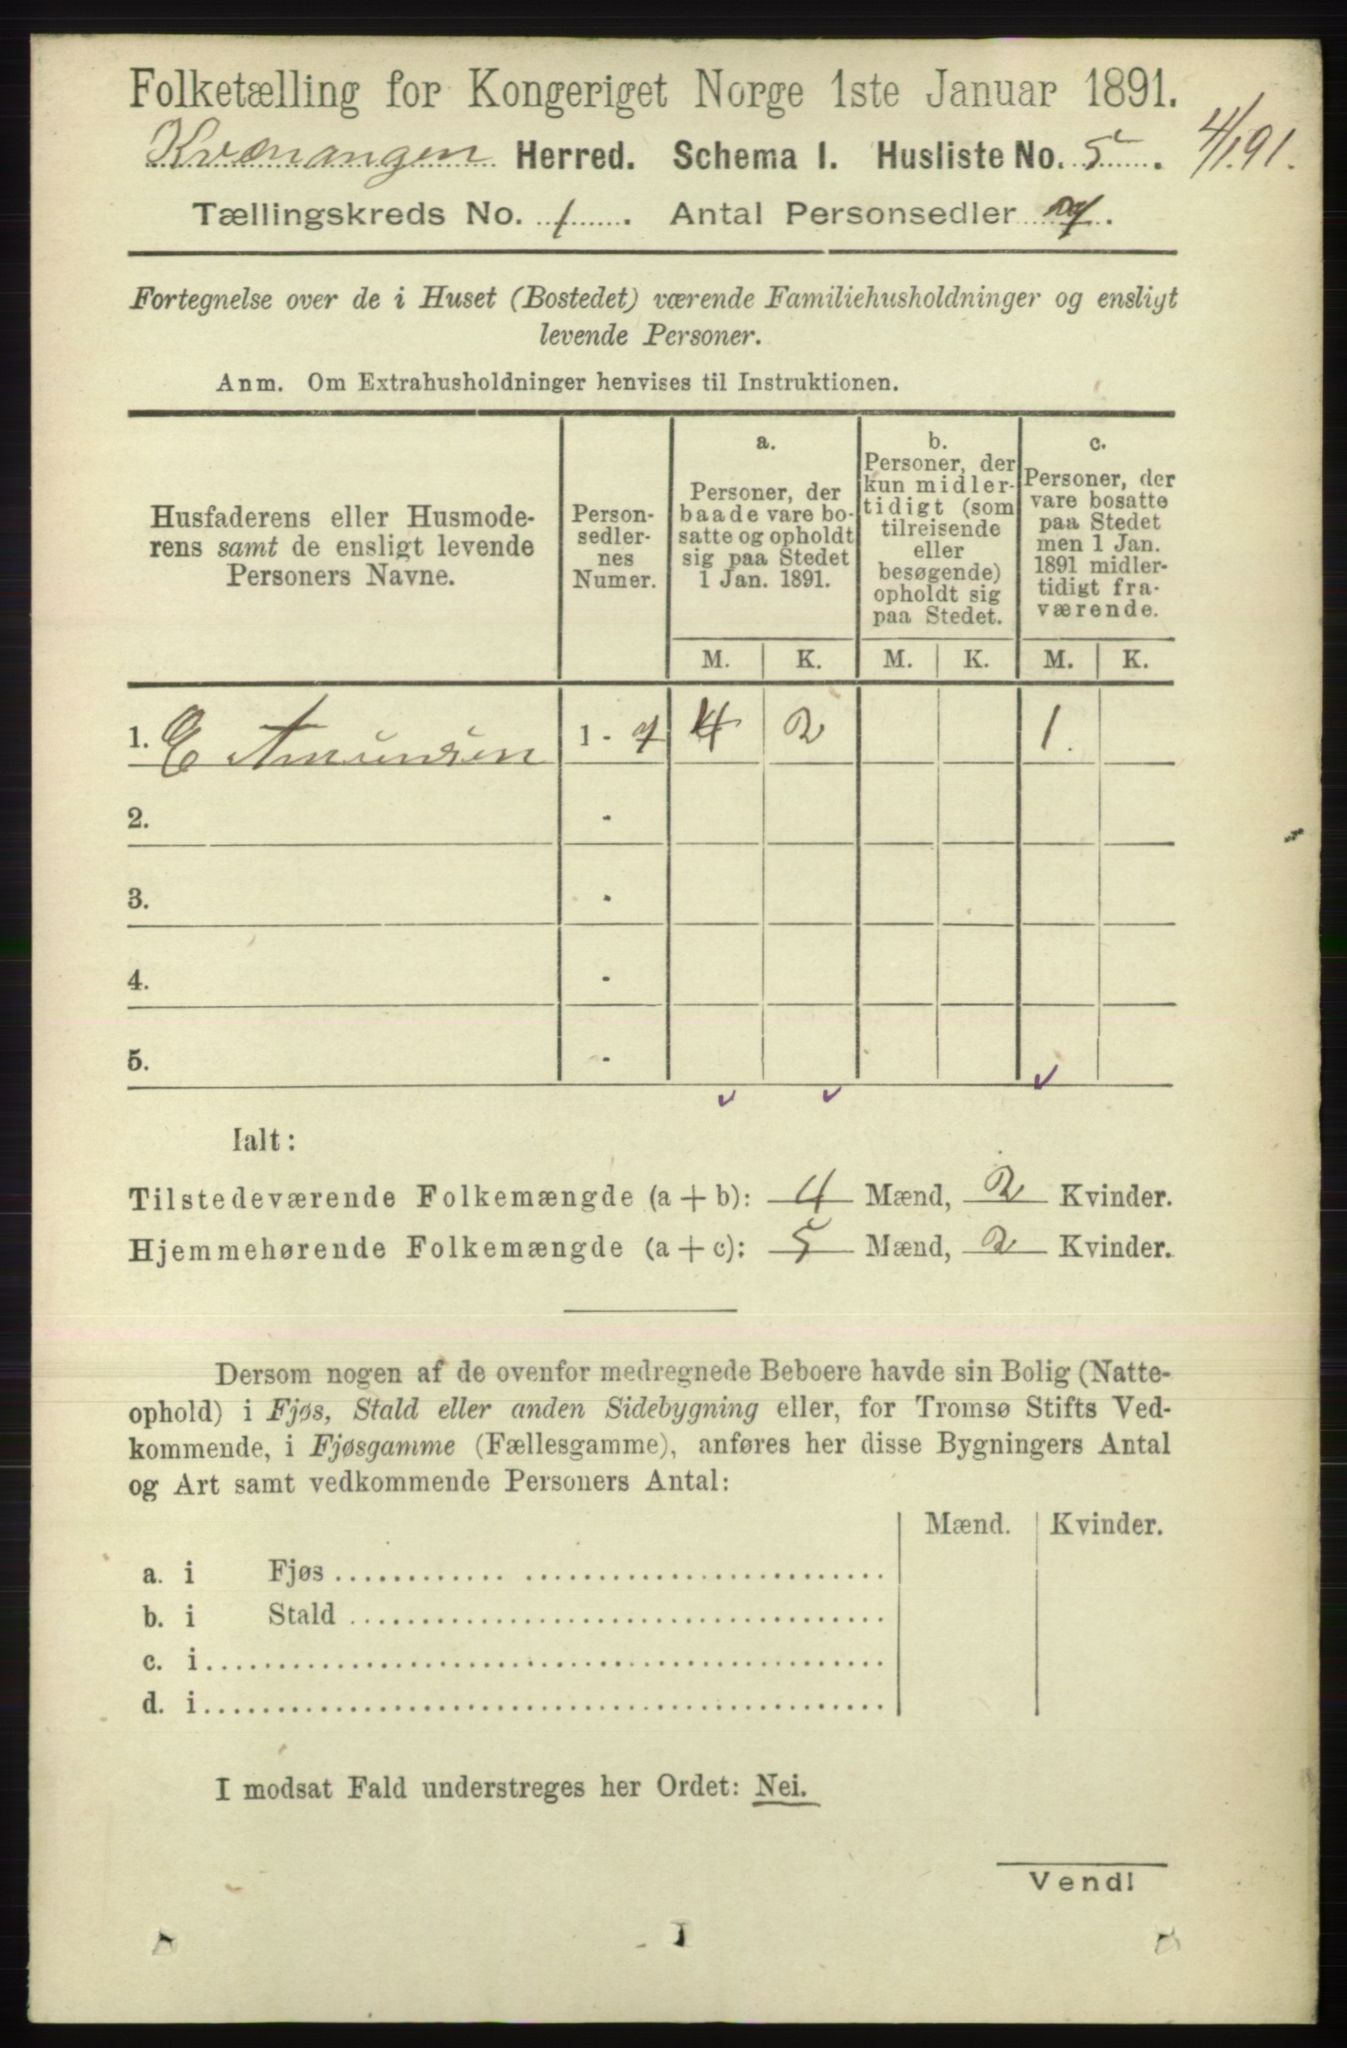 Folketælling for Kongeriget Norge 1ste Januar 1891.
Kvænangen Herred. Schema I. Husliste No. 5. 4/1 91.
Tællingskreds No. 1. Antal Personsedler 7.
Fortegnelse over de i Huset (Bostedet) værende Familiehusholdninger og ensligt
levende Personer.
Anm. Om Extrahusholdninger henvises til Instruktionen.
Husfaderens eller Husmode-
rens samt de ensligt levende
Personers Navne.
Person-
sedler-
nes
Numer.
a.
Personer, der
baade vare bo-
satte og opholdt
sig paa Stedet
1 Jan. 1891.
b.
Personer, der
kun midler-
tidigt (som
tilreisende
eller
besøgende)
opholdt sig
paa Stedet.
c.
Personer, der
vare bosatte
paa Stedet
men 1 Jan.
1891 midler-
tidigt fra-
værende.
M. K. M. K. M. K.
1. E Amundsen 1 - 7 4 2 1.
2. -
3. -
4. -
5. -
Ialt:
Tilstedeværende Folkemængde (a + b): 4 Mænd, 2 Kvinder.
Hjemmehørende Folkemængde (a + c): 5 Mænd, 2 Kvinder.
Dersom nogen af de ovenfor medregnede Beboere havde sin Bolig (Natte-
ophold) i Fjøs, Stald eller anden Sidebygning eller, for Tromsø Stifts Ved-
kommende, i Fjøsgamme (Fællesgamme), anføres her disse Bygningers Antal
og Art samt vedkommende Personers Antal:
Mænd. Kvinder.
a. i Fjøs
b. i Stald
c. i
d. i
I modsat Fald understreges her Ordet: Nei.
Vend!